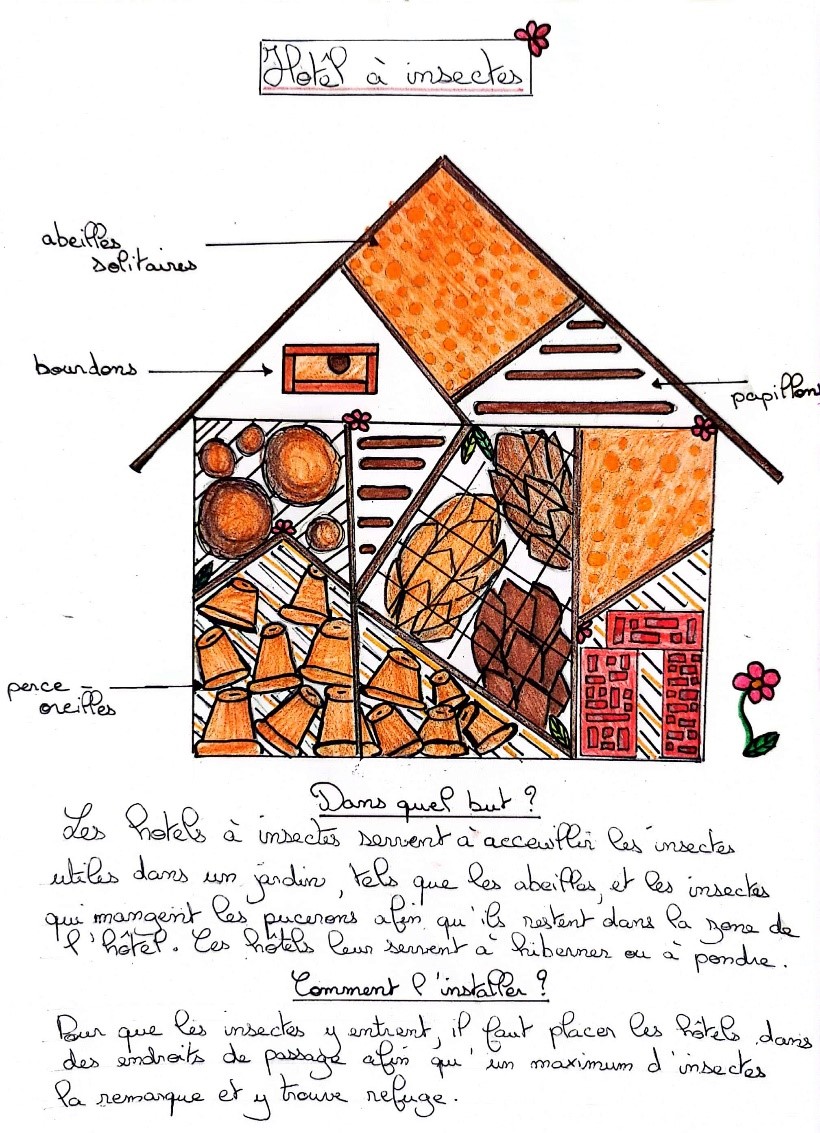 Hôtel à insectes
abeilles
solitaires
bourdons
papillons
perce-
oreilles
Dans quel but ?
Les hotels à insectes servent à acceuillir les insectes
utiles dans un jardin, tels que les abeilles, et les insectes
qui mangent les pucerons afin qu'ils restent dans la zone de
l'hôtel. Ces hôtels leur servent à hiberner ou à pondre.
Comment l'installer ?
Pour que les insectes y entrent, il faut placer les hôtels dans
des endroits de passage afin qu'un maximum d'insectes
la remarque et y trouve refuge.